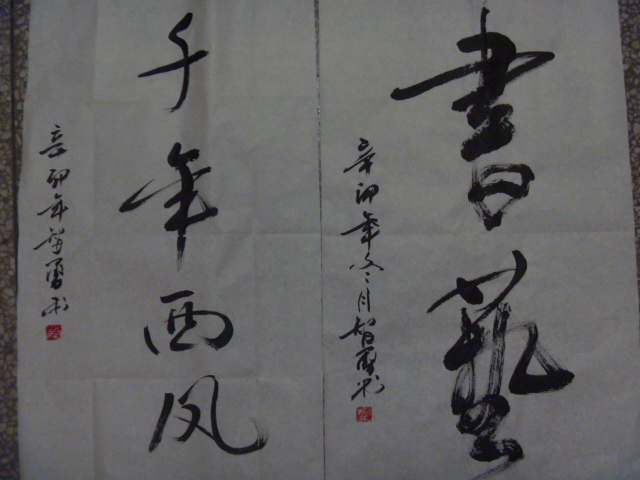 書藝
辛卯年冬月智勇书
千年西风
辛卯年智勇书